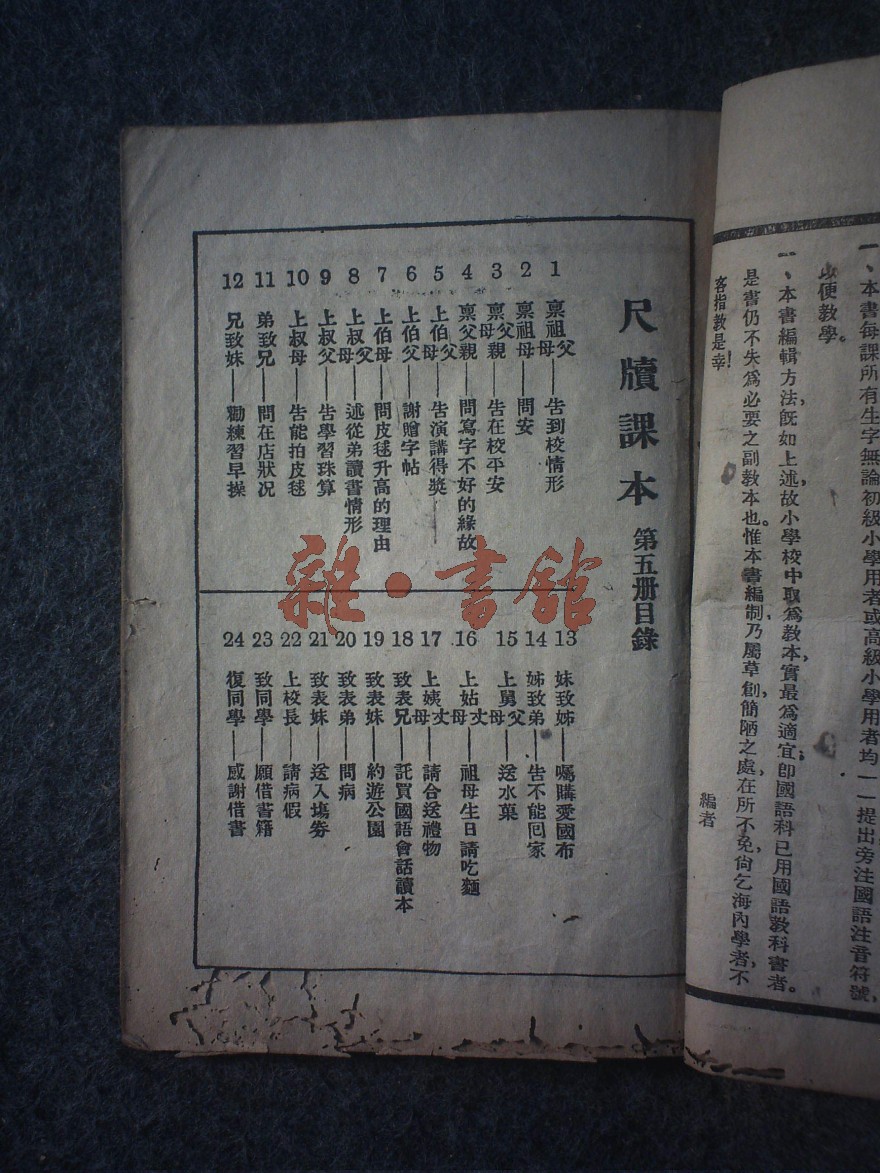 一、本書每課所有生字無論初級小學用者或高級小學用者均一一提出旁注國語注音符號,
以便教學。
一、本書編輯方法,旣如上述,故小學校中取爲敎本,實最爲適宜卽國語科已用國語敎科書者。
是書仍不失爲必要之副敎本也。惟本書編制,乃屬草創,簡陋之處,在所不免,尙乞海內學者,不
吝指敎是幸!
編者
尺牘課本 第五册目錄
1 禀祖父母——告到校情形
2 禀祖母——問安
3 禀父母親——告在校平安
4 禀父親——問寫字不好的緣故
5 上伯父母——告演講得獎
6 上伯父——謝贈字帖
7 上伯母——問皮毬升高的理由
8 上叔父母——述從弟讀書情形
9 上叔父——告學習珠算
10 上叔母——告能拍皮毬
11 弟致兄——問在店狀况
12 兄致妹——勸練習早操
13 妹致姊——囑購愛國布
14 姊致弟——告不能回家
15 上舅父母——送水菓
16 上姑丈母——祖母生日請吃麵
17 上姨丈母——請合送禮物
18 致表兄——託買國語會話讀本
19 致表妹——約遊公園
20 致表弟——問病
21 致表妹——送入塲劵
22 上校長——請病假
23 致同學——願借書籍
24 復同學——感謝借書
雜·書館